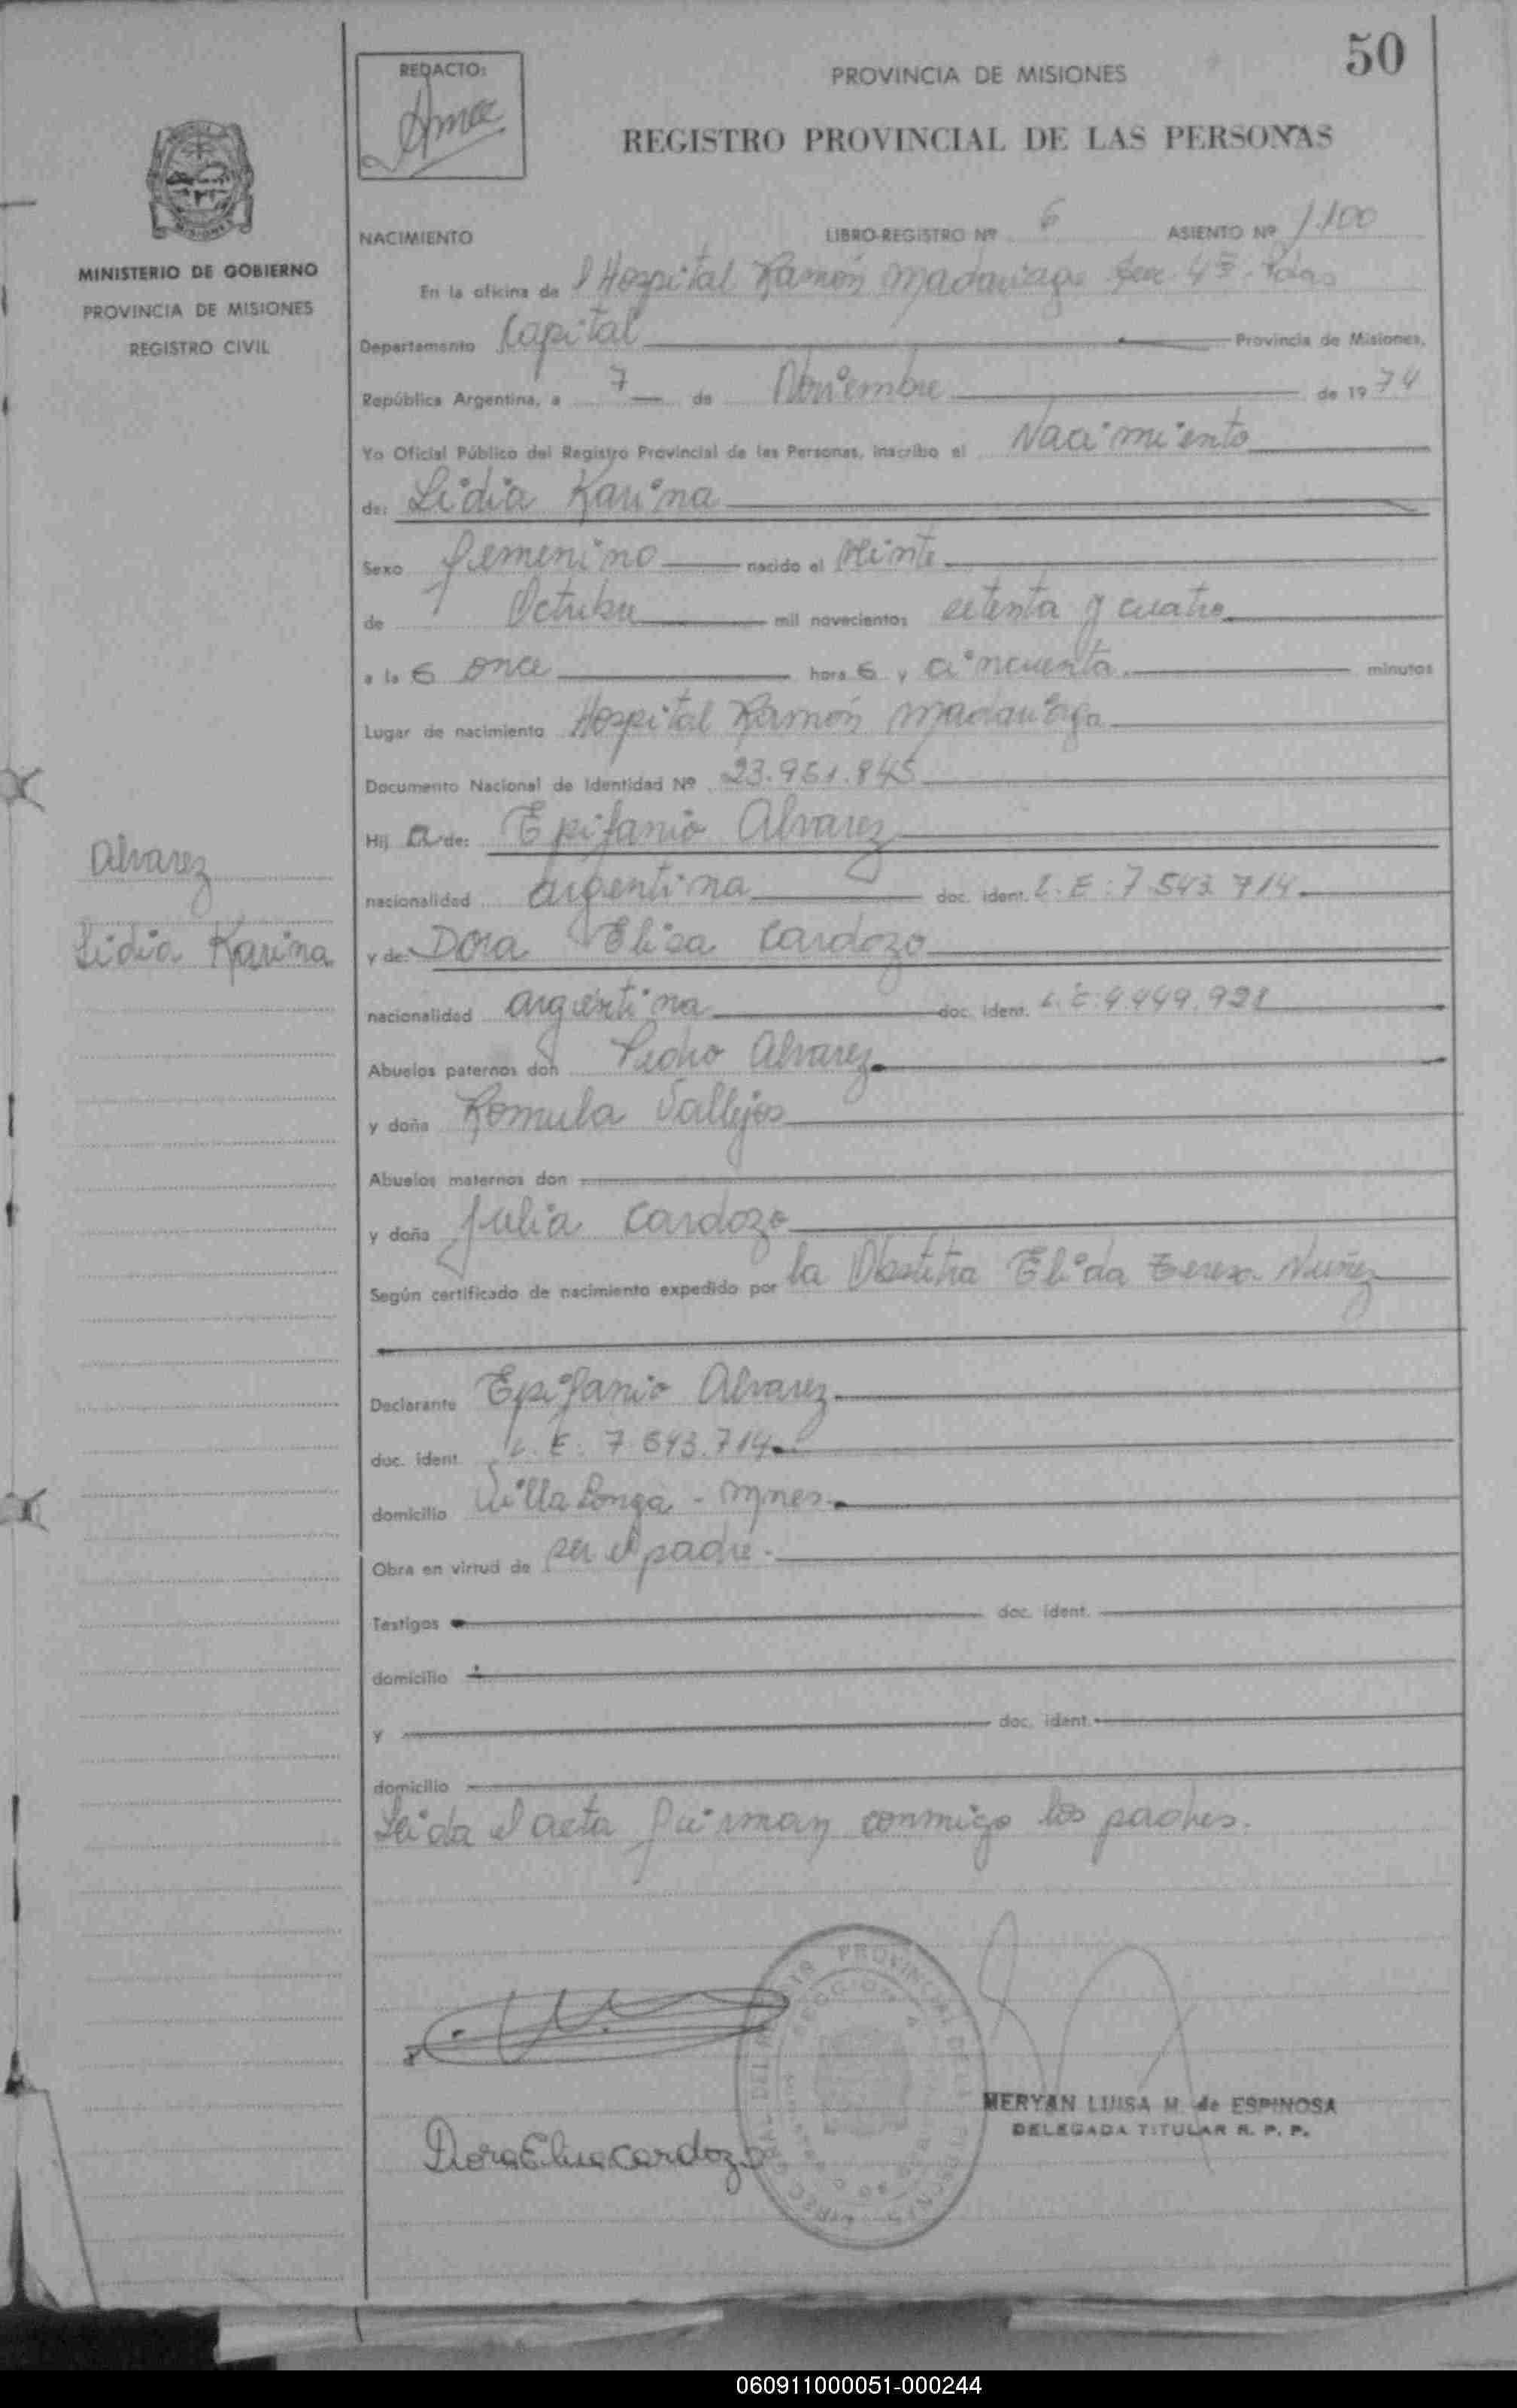 50
REDACTO:
PROVINCIA DE MISIONES
REGISTRO PROVINCIAL DE LAS PERSONAS
MISIONES
MINISTERIO DE GOBIERNO
PROVINCIA DE MISIONES
REGISTRO CIVIL
NACIMIENTO LIBRO-REGISTRO Nº 6 ASIENTO Nº 1.100
En la oficina de l Hospital Ramón Madariaga Sec 4ª Pdas
Departamento Capital Provincia de Misiones,
República Argentina, a 7 de Noviembre de 1974
Yo Oficial Público del Registro Provincial de las Personas, inscribo el Nacimiento
de: Lidia Karina
Sexo femenino nacido el veinte
de Octubre mil novecientos setenta y cuatro
a la s once hora s y cincuenta minutos
Lugar de nacimiento Hospital Ramón Madariaga
Documento Nacional de Identidad Nº 23.951.845
Hij a de: Epifanio Alvarez
nacionalidad argentina doc. ident. L.E: 7.543.714
Alvarez
Lidia Karina
y de: Dora Elisa Cardozo
nacionalidad argentina doc. ident. L.C: 4.449.921
Abuelos paternos don Pedro Alvarez
y doña Romula Vallejos
Abuelos maternos don
y doña Julia Cardozo
Según certificado de nacimiento expedido por la Obstetra Elida Nuñez
Declarante Epifanio Alvarez
doc. ident. L.E. 7.543.714
domicilio Villa Longa - Mnes.
Obra en virtud de ser el padre.
Testigos doc. ident.
domicilio
y doc. ident.
domicilio
Leida el acta firman conmigo los padres.
MERYAN LUISA M. de ESPINOSA
DELEGADA TITULAR R. P. P.
Dora Elisa Cardozo
060911000051-000244